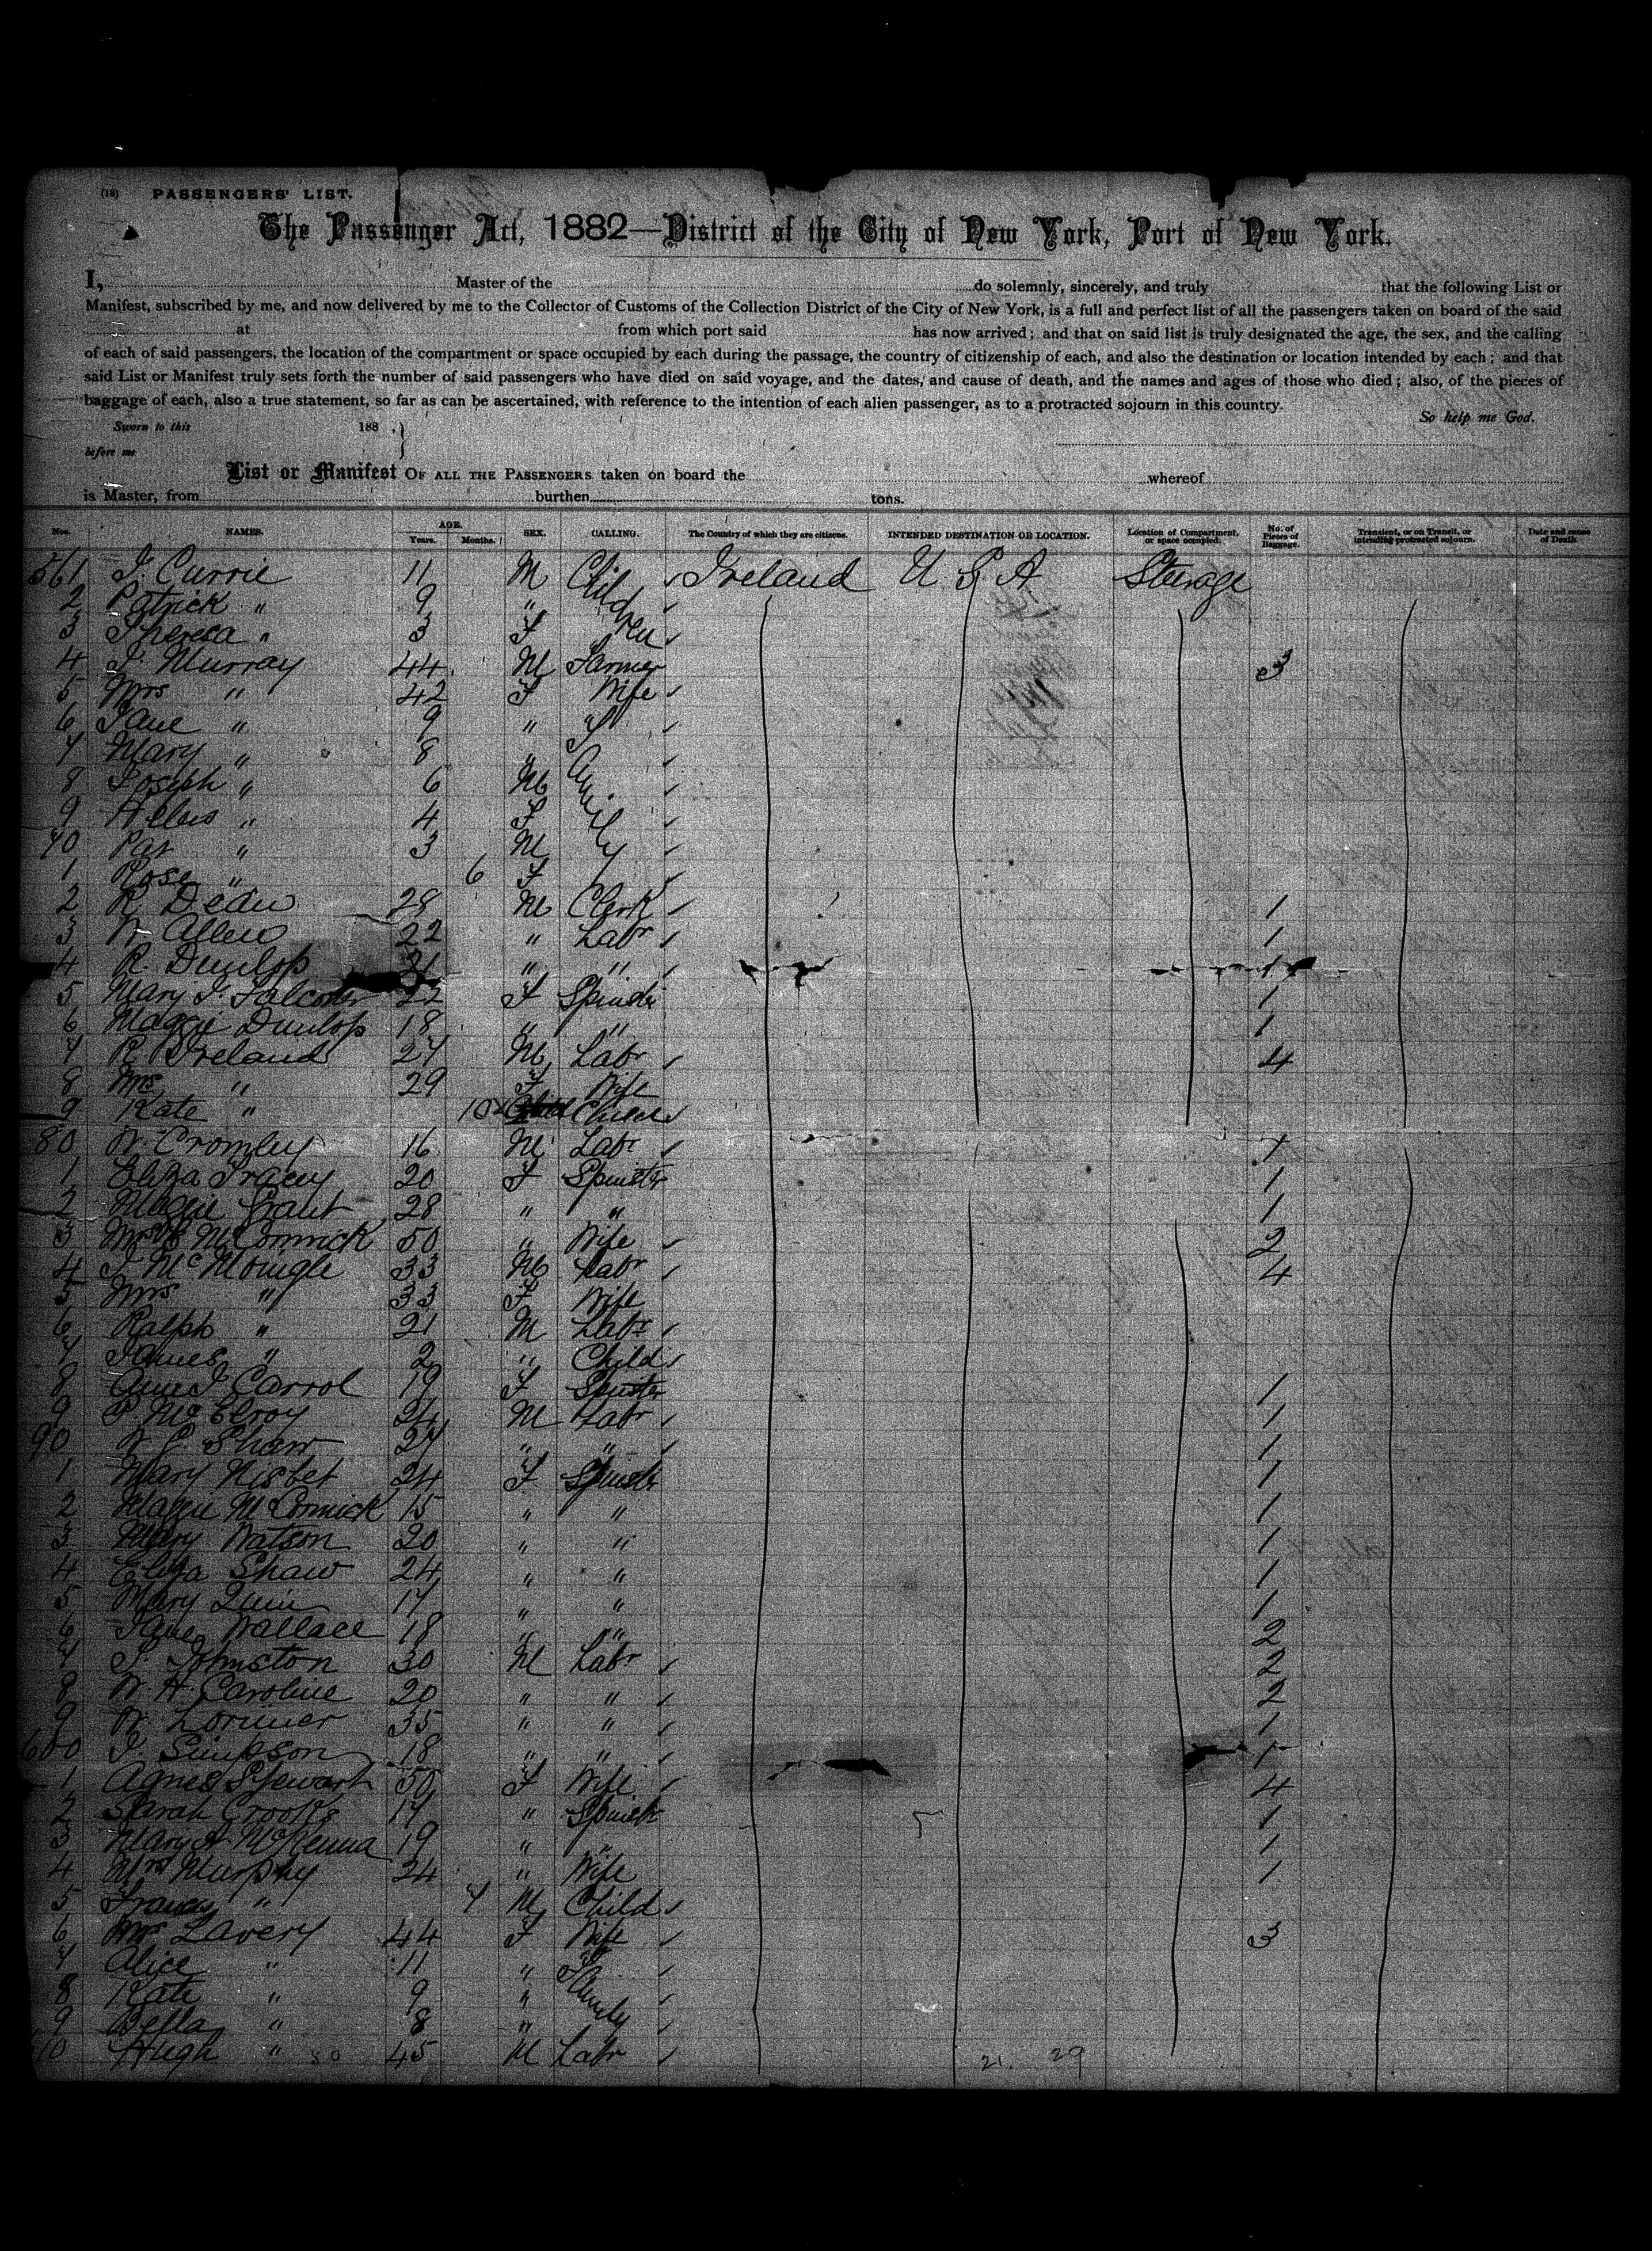 (18) PASSENGERS' LIST.
The Passenger Act, 1882—District of the City of New York, Port of New York.
I, Master of the do solemnly, sincerely, and truly that the following List or
Manifest, subscribed by me, and now delivered by me to the Collector of Customs of the Collection District of the City of New York, is a full and perfect list of all the passengers taken on board of the said
at from which port said has now arrived; and that on said list is truly designated the age, the sex, and the calling
of each of said passengers, the location of the compartment or space occupied by each during the passage, the country of citizenship of each, and also the destination or location intended by each; and that
said List or Manifest truly sets forth the number of said passengers who have died on said voyage, and the dates, and cause of death, and the names and ages of those who died; also, of the pieces of
baggage of each, also a true statement, so far as can be ascertained, with reference to the intention of each alien passenger, as to a protracted sojourn in this country.
So help me God.
Sworn to this 188 .
before me
List or Manifest OF ALL THE PASSENGERS taken on board the whereof
is Master, from burthen tons.
Nos. NAMES. AGE. Years. Months. SEX. CALLING. The Country of which they are citizens. INTENDED DESTINATION OR LOCATION. Location of Compartment, or space occupied. No. of Pieces of Baggage. Transient, or on Transit, or intending protracted sojourn. Date and cause of Death
561 J. Currie 11 M Children Ireland U S A Sterage
2 Patrick " 9 "
3 Theresa " 3 F
4 J. Murray 44 M Farmer 3
5 Mrs " 42 F Wife
6 Jane " 9 " Family
7 Mary " 8 "
8 Joseph " 6 M
9 " 4 F
70 Pat " 3 M
1 Rose " 6 F
2 R. Dean 28 M Clerk 1
3 W. Allen 22 " Labr 1
4 R. Dunlop 21 " " 1
5 Mary J. Falconer 22 F Spinster 1
6 Maggie Dunlop 18 " " 1
7 R. Ireland 27 M Labr 4
8 Mrs " 29 F Wife
9 Kate " 10 Child
80 W. Cromley 16 M Labr 1
1 Eliza Tracey 20 F Spinster 1
2 Maggie Grant 28 " " 1
3 Mrs McCormick 50 " Wife 2
4 J McMonigle 33 M Labr 4
5 Mrs " 33 F Wife
6 Ralph " 21 M Labr
7 James " 2 " Child
8 Anne J Carrol 19 F Spinster 1
9 P. McElroy 24 M Labr 1
90 W. J. Shaw 27 " " 1
1 Mary Nisbet 24 F Spinster 1
2 Maggie McCormick 15 " " 1
3 Mary Watson 20 " " 1
4 Eliza Shaw 24 " " 1
5 Mary Quin 17 " " 1
6 Jane Wallace 18 " " 2
7 J. Johnston 30 M Labr 2
8 W. H. Caroline 20 " " 2
9 W. Lorimer 35 " " 1
600 J. Simpson 18 " " 1
1 Agnes Stewart 50 F Wife 4
2 Sarah Crooks 17 " Spinster 1
3 Mary A McKenna 19 " " 1
4 Mrs Murphy 24 " Wife 1
5 Francis " 7 M Child
6 Mrs Lavery 44 F Wife 3
7 Alice " 11 " Family
8 Kate " 9 "
9 Bella " 8 "
10 Hugh " 30 45 M Labr 21. 29